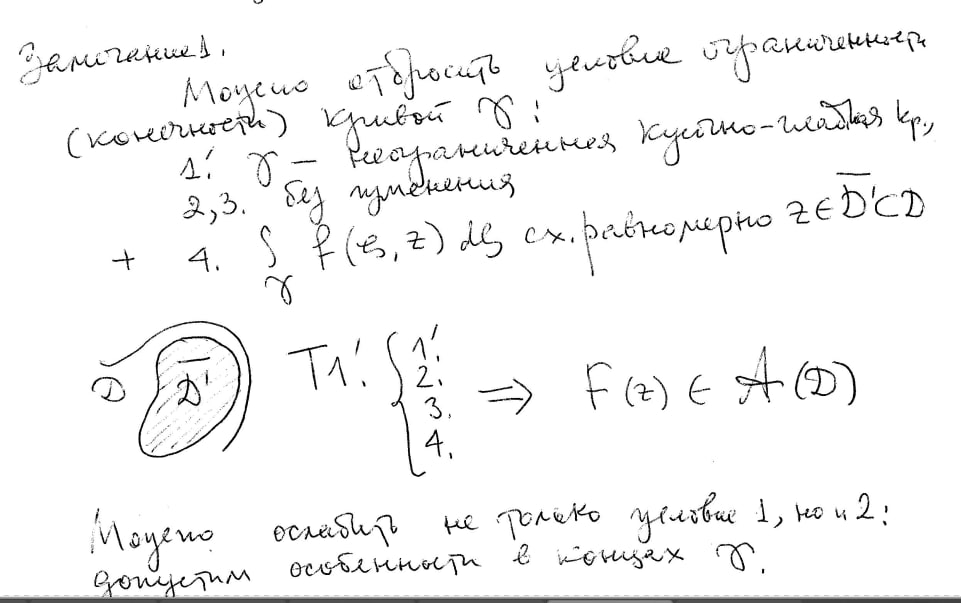 Замечание 1.
Можно отбросить условие ограниченности
(конечности) кривой γ:
1'. γ – неограниченная кусочно-гладкая кр.,
2,3. без изменения
+ 4. ∫_γ f(ζ, z) dζ сх. равномерно z ∈ D̅' ⊂ D
D D̅' T1'. { 1'. 2. 3. 4. ⇒ F(z) ∈ A(D)
Можно ослабить не только условие 1, но и 2:
допустим особенности в концах γ.